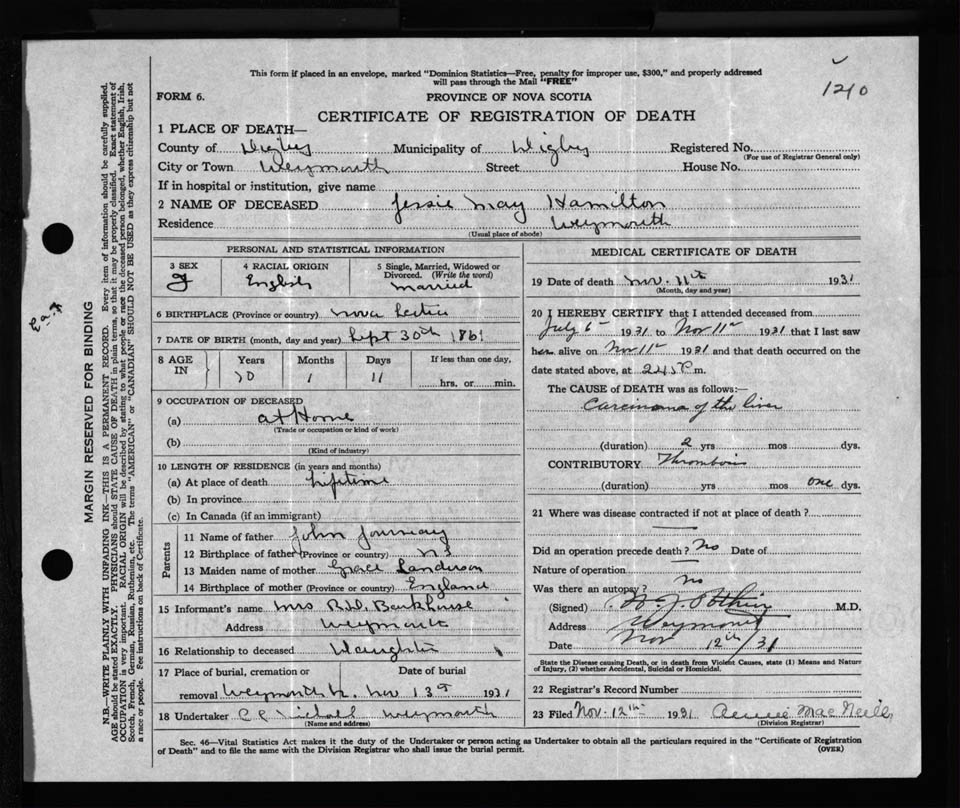 This form if placed in an envelope, marked "Dominion Statistics—Free, penalty for improper use, $300," and properly addressed
will pass through the Mail "FREE"
1210
FORM 6.
PROVINCE OF NOVA SCOTIA
CERTIFICATE OF REGISTRATION OF DEATH
1 PLACE OF DEATH—
County of Digby Municipality of Digby Registered No.
(For use of Registrar General only)
City or Town Weymouth Street House No.
If in hospital or institution, give name
2 NAME OF DECEASED Jessie May Hamilton
Residence Weymouth
(Usual place of abode)
PERSONAL AND STATISTICAL INFORMATION
3 SEX 4 RACIAL ORIGIN 5 Single, Married, Widowed or
Divorced. (Write the word)
F English married
6 BIRTHPLACE (Province or country) Nova Scotia
7 DATE OF BIRTH (month, day and year) Sept 30th 1861
8 AGE IN Years Months Days If less than one day,
70 1 11 hrs. or min.
9 OCCUPATION OF DECEASED
(a) at Home
(Trade or occupation or kind of work)
(b)
(Kind of industry)
10 LENGTH OF RESIDENCE (in years and months)
(a) At place of death lifetime
(b) In province
(c) In Canada (if an immigrant)
Parents
11 Name of father John Journeay
12 Birthplace of father (Province or country) N S
13 Maiden name of mother Grace Sanderson
14 Birthplace of mother (Province or country) England
15 Informant's name Mrs Barkhouse
Address Weymouth
16 Relationship to deceased Daughter
17 Place of burial, cremation or Date of burial
removal Weymouth Nov 13th 1931
18 Undertaker Weymouth
(Name and address)
MEDICAL CERTIFICATE OF DEATH
19 Date of death Nov. 11th 1931
(Month, day and year)
20 I HEREBY CERTIFY that I attended deceased from
July 6th 1931 to Nov 11th 1931 that I last saw
her alive on Nov 11th 1931 and that death occurred on the
date stated above, at P.m.
The CAUSE of DEATH was as follows:—
Carcinoma of the liver
(duration) 2 yrs mos dys.
CONTRIBUTORY Thrombosis
(duration) yrs mos one dys.
21 Where was disease contracted if not at place of death?
Did an operation precede death? No Date of
Nature of operation
Was there an autopsy? No
(Signed) M.D.
Address Weymouth
Date Nov 12th/31
State the Disease causing Death, or in death from Violent Causes, state (1) Means and Nature
of Injury, (2) whether Accidental, Suicidal or Homicidal.
22 Registrar's Record Number
23 Filed Nov. 12th 1931 Annie MacNeill
(Division Registrar)
Sec. 46—Vital Statistics Act makes it the duty of the Undertaker or person acting as Undertaker to obtain all the particulars required in the "Certificate of Registration
of Death" and to file the same with the Division Registrar who shall issue the burial permit. (OVER)
MARGIN RESERVED FOR BINDING
N.B.—WRITE PLAINLY WITH UNFADING INK—THIS IS A PERMANENT RECORD. Every item of information should be carefully supplied.
AGE should be stated EXACTLY. PHYSICIANS should STATE CAUSE OF DEATH in plain terms, so that it may be properly classified. Exact statement of
OCCUPATION is very important. RACIAL ORIGIN will be described by stating to what people or race the deceased person belonged, whether English, Irish,
Scotch, French, German, Russian, Ruthenian, etc. The terms "AMERICAN" or "CANADIAN" SHOULD NOT BE USED as they express citizenship but not
a race or people. See instructions on back of Certificate.